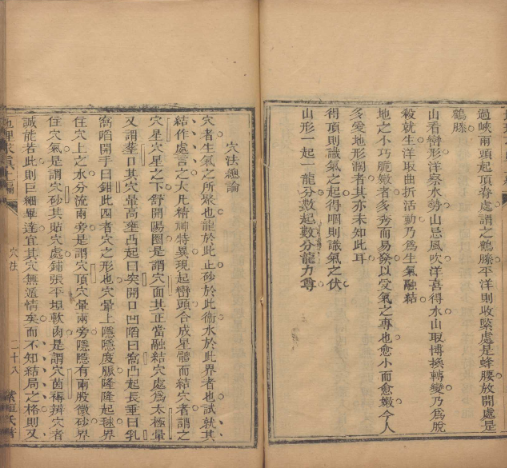 過峽兩頭起頂脊處謂之鶴膝平洋則收緊處是蜂腰放開處是
鶴膝
山看巒形洋察水勢山忌風吹洋喜得水山取博換轉變乃為脫
殺就生洋取曲折活動乃為生氣融結
地之小巧脆嫩者多秀而易發以受氣之專也愈小而愈嫩令人
多愛地形濶者其亦未知此耳
得頂則識氣之起得咽則識氣之伏
山形一起一龍分數起數分龍力尊
穴法總論
穴者生氣之所聚也龍於此止砂於此衛水於此界者也試就其
結作處言之大凡精神特異現起巒頭合成星體而結穴者謂之
穴星穴星之下舒開陽面是謂穴面其正當融結穴處為太極暈
又謂葬口其穴暈高塋凸起曰突開口凹陷曰窩凸起長垂曰乳
窩陷開手曰鉗此四者穴之形也穴暈上隱隱度脈隆隆起毬界
住穴上之水分流兩旁是謂穴頂穴暈兩旁隱隱有兩股微砂界
住穴氣是謂穴砂其貼穴處鋪張平坦軟肉是謂穴唇褥辨穴者
誠能若此則巨細畢達宜其穴無遁情矣而不知結局之格則又
穴法
二十八